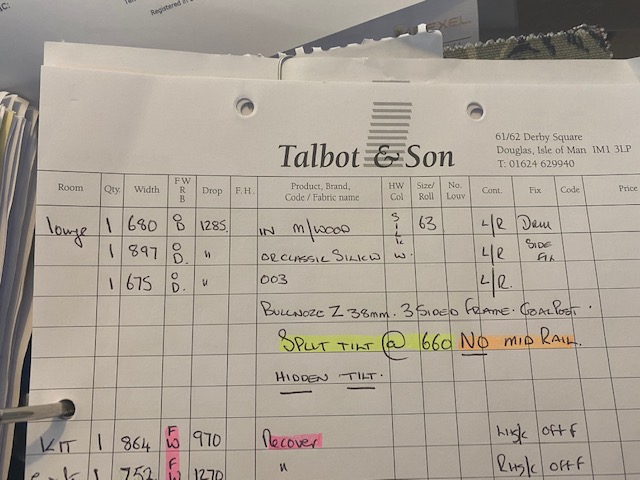 Registered in
EXEL
Talbot & Son
61/62 Derby Square
Douglas, Isle of Man IM1 3LP
T: 01624 629940
Room Qty. Width F W R B Drop F.H. Product, Brand, Code / Fabric name HW Col Size/ Roll No. Louv Cont. Fix Code Price
Lounge 1 680 O D 1285 IN M/WOOD 63 L/R
1 897 O D. " OR CLASSIC W. L/R SIDE FIX
1 675 O D. " 003 L/R.
BULLNOZE Z 38mm. 3 SIDED FRAME. GOALPOST.
SPLIT TILT @ 660 NO MID RAIL.
HIDDEN TILT.
KIT 1 864 F W 970 Recover LH/c OFF
1 752 F W 1270 " RH/c OFF